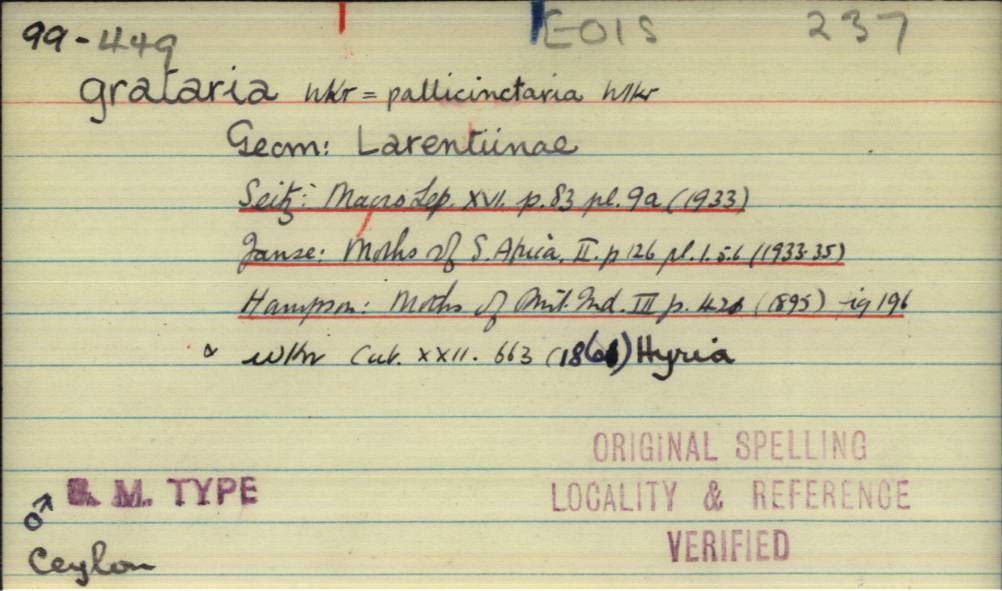 99-449 EOIS 237
grataria Wkr = pallicinctaria Wlkr
Geom: Larentiinae
Seitz: Macro Lep. XVI. p. 83 pl. 9a (1933)
Janse: Moths of S. Africa, II. p 126 pl. 1. 5. 6 (1933-35)
Hampson: Moths of Brit. Ind. III p. 420 (1895) ig 196
Wlkr Cat. XXII. 663 (1861) Hyria
ORIGINAL SPELLING
LOCALITY & REFERENCE
VERIFIED
♂ B. M. TYPE
Ceylon